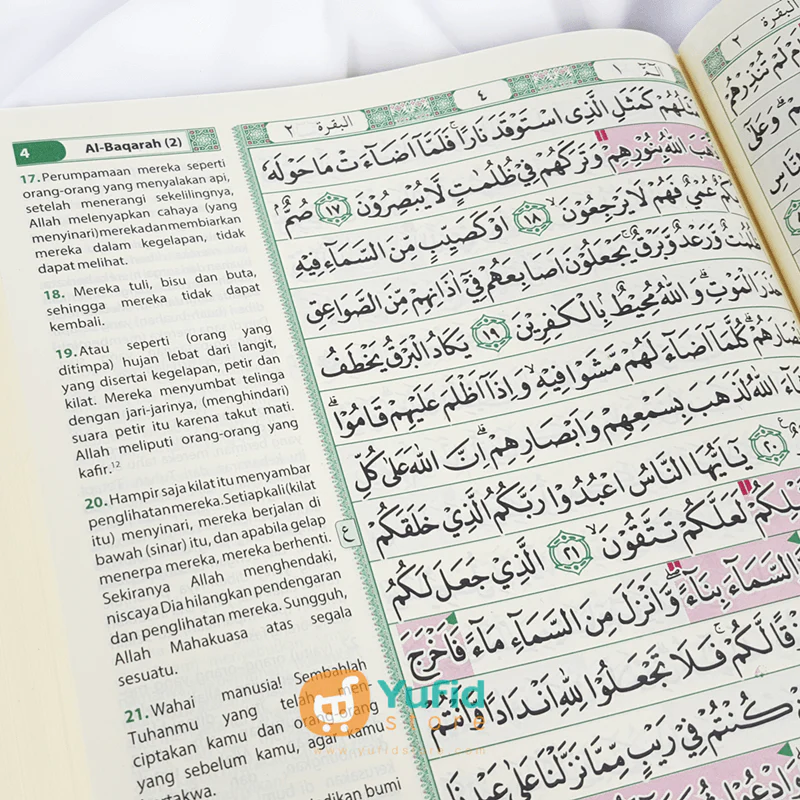 4
Al-Baqarah (2)
17. Perumpamaan mereka seperti
orang-orang yang menyalakan api,
setelah menerangi sekelilingnya,
Allah melenyapkan cahaya (yang
menyinari) mereka dan membiarkan
mereka dalam kegelapan, tidak
dapat melihat.
18. Mereka tuli, bisu dan buta,
sehingga mereka tidak dapat
kembali.
19. Atau seperti (orang yang
ditimpa) hujan lebat dari langit,
yang disertai kegelapan, petir dan
kilat. Mereka menyumbat telinga
dengan jari-jarinya, (menghindari)
suara petir itu karena takut mati.
Allah meliputi orang-orang yang
kafir.¹²
20. Hampir saja kilat itu menyambar
penglihatan mereka. Setiap kali (kilat
itu) menyinari, mereka berjalan di
bawah (sinar) itu, dan apabila gelap
menerpa mereka, mereka berhenti.
Sekiranya Allah menghendaki,
niscaya Dia hilangkan pendengaran
dan penglihatan mereka. Sungguh,
Allah Mahakuasa atas segala
sesuatu.
21. Wahai manusia! Sembahlah
Tuhanmu yang telah men-
ciptakan kamu dan orang-orang
yang sebelum kamu, agar kamu
bertakwa.
dikan bumi
البقرة ٢
٤
الۤمّۤ ١
كَمَثَلِ الَّذِى اسْتَوْقَدَ نَارًاۚ فَلَمَّآ اَضَاۤءَتْ مَا حَوْلَهٗ
اللّٰهُ بِنُوْرِهِمْ وَتَرَكَهُمْ فِيْ ظُلُمٰتٍ لَّا يُبْصِرُوْنَ ١٧ صُمٌّۢ
عُمْيٌ فَهُمْ لَا يَرْجِعُوْنَۙ ١٨ اَوْ كَصَيِّبٍ مِّنَ السَّمَاۤءِ فِيْهِ
وَّرَعْدٌ وَّبَرْقٌۚ يَجْعَلُوْنَ اَصَابِعَهُمْ فِيْٓ اٰذَانِهِمْ مِّنَ الصَّوَاعِقِ
الْمَوْتِۗ وَاللّٰهُ مُحِيْطٌۢ بِالْكٰفِرِيْنَ ١٩ يَكَادُ الْبَرْقُ يَخْطَفُ
كُلَّمَآ اَضَاۤءَ لَهُمْ مَّشَوْا فِيْهِۙ وَاِذَآ اَظْلَمَ عَلَيْهِمْ قَامُوْاۗ
اللّٰهُ لَذَهَبَ بِسَمْعِهِمْ وَاَبْصَارِهِمْۗ اِنَّ اللّٰهَ عَلٰى كُلِّ
٢٠ يٰٓاَيُّهَا النَّاسُ اعْبُدُوْا رَبَّكُمُ الَّذِيْ خَلَقَكُمْ
لَعَلَّكُمْ تَتَّقُوْنَۙ ٢١ الَّذِيْ جَعَلَ لَكُمُ
السَّمَاۤءَ بِنَاۤءًۖ وَّاَنْزَلَ مِنَ السَّمَاۤءِ مَاۤءً فَاَخْرَجَ
لَّكُمْۚ فَلَا تَجْعَلُوْا لِلّٰهِ اَنْدَادًا وَّاَنْتُمْ
كُنْتُمْ فِيْ رَيْبٍ مِّمَّا نَزَّلْنَا عَلٰى عَبْدِنَا
ع
البقرة ٢
Yufid
STORE
www.yufidstore.com